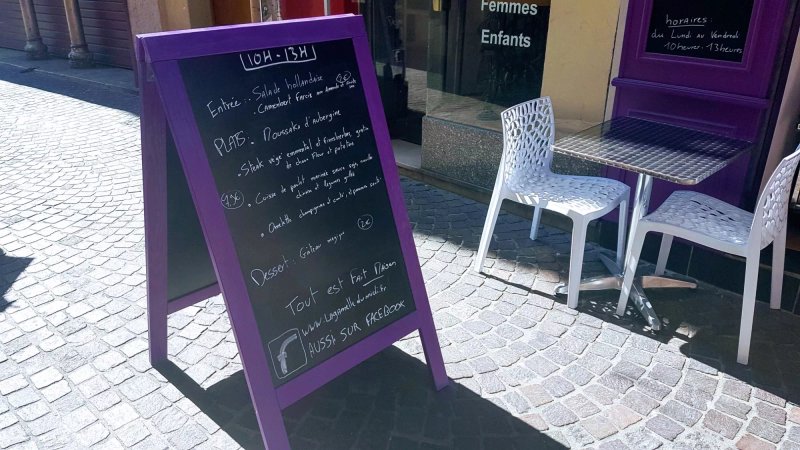 10H - 13H
Entrée : Salade hollandaise
• Camembert Farcis aux Amande et
PLATS : Moussaka d'aubergine
• Steak végé emmental et
de chou Fleur et patatine
• Cuisse de poulet marinée sauce soja, nouille
chinois et légumes grillé
• Omelette champignons et comté,
Dessert : Gâteau magique
2€
Tout est Fait Maison
www.LAgamelle du midi.fr
AUSSI SUR FACEBOOK
Femmes
Enfants
horaires :
du Lundi au Vendredi
10heures. 13heures